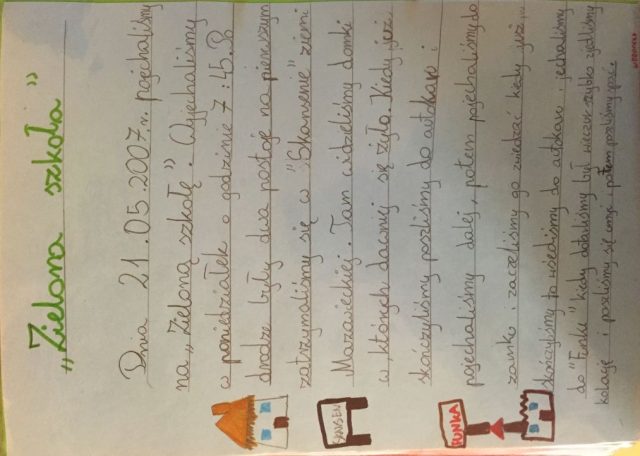 „Zielona szkoła”
Dnia 21.05.2007r. pojechaliśmy
na „Zieloną szkołę”. Wyjechaliśmy
w poniedziałek o godzinie 7:45. Po
drodze były dwa postoje na pierwszym
zatrzymaliśmy się w "Skansenie" ziemi
Mazowieckiej. Tam widzieliśmy domki
w których dawniej się żyło. Kiedy już
skończyliśmy poszliśmy do autokaru i
pojechaliśmy dalej, potem pojechaliśmy do
zamku i zaczeliśmy go zwiedzać kiedy już
skończyliśmy to wsiedliśmy do autokaru i jechaliśmy
do "Funki" kiedy dotaliśmy był wieczór szybko zjedliśmy
kolację i poszliśmy się umyć i potem poszliśmy spać
SKANSEN
FUNKA